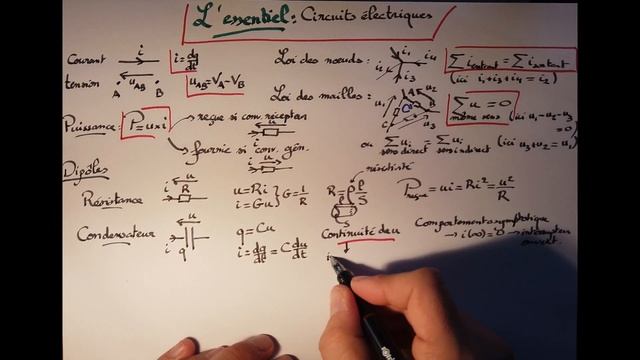 L'essentiel : Circuits électriques
Courant i i = dq/dt
tension u_AB A B u_AB = V_A - V_B
Loi des nœuds : i1 i2 i3 i4 Σ i entrant = Σ i sortant
(ici i1+i3+i4 = i2)
Loi des mailles : u1 u2 u3 A B C Σ u = 0
même sens (ici u1-u2-u3 = 0)
ou Σ u sens direct = Σ u sens indirect (ici u3+u2 = u1)
Puissance : P = u×i reçue si conv. récepteur u i
fournie si conv. gén. u i
Dipôles
Résistance u i R u = Ri i = Gu } G = 1/R
résistivité
R = ρ l/S l S
P reçue = ui = Ri² = u²/R
Condensateur u i q q = Cu
i = dq/dt = C du/dt
Continuité de u
Comportement asymptotique
→ i(∞) = 0 → interrupteur ouvert.